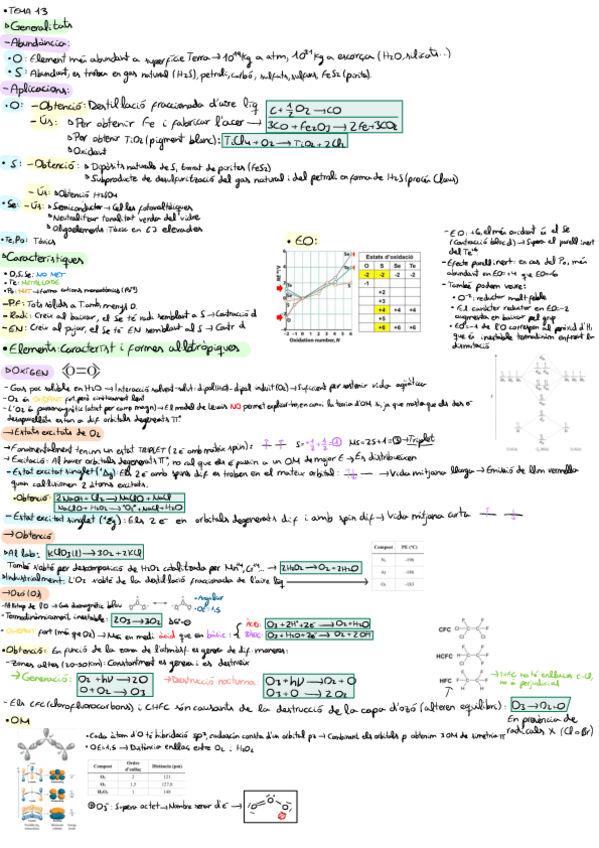 • TEMA 13
▷ Generalitats
- Abundància:
• O: Element més abundant a superfície Terra → 10¹⁸ kg a atm, 10²¹ kg a escorça (H₂O, silicats...)
• S: Abundant, es troba en gas natural (H₂S), petroli, carbó, sulfats, sulfurs, FeS₂ (pirita).
- Aplicacions:
• O: - Obtenció: Destil·lació fraccionada d'aire líq
C + ½O₂ → CO
- Ús: ▷ Per obtenir Fe i fabricar l'acer → 3CO + Fe₂O₃ → 2Fe + 3CO₂
▷ Per obtenir TiO₂ (pigment blanc): TiCl₄ + O₂ → TiO₂ + 2Cl₂
▷ Oxidant
• S: - Obtenció: ▷ Dipòsits naturals de S, torrat de pirites (FeS₂)
▷ Subproducte de desulfurització del gas natural i del petroli en forma de H₂S (procés Claus)
- Ús: ▷ Obtenció H₂SO₄
• Se: - Ús: ▷ Semiconductor → Cel·les fotovoltàiques
▷ Neutralitzar tonalitat verda del vidre
▷ Oligoelements Tòxic en [ ] elevades
• Te, Po: Tòxics
▷ Característiques
• O, S, Se: NO MET
• Te: METAL·LOIDE
• Po: MET → Forma cations monoatòmics (Po²⁺)
- P.F: Tots sòlids a T amb menys O.
- Radi: Creix al baixar, el Se té radi semblant a S → Contracció d
- EN: Creix al pujar, el Se té EN semblant al S → Contr d
• EO:
Oxidation number, N
Estats d'oxidació
O S Se Te
-2 -2 -2 -2
-1
+2
+3
+4 +4 +4
+5
+6 +6 +6
- EO: +6, el més oxidant és el Se
(contracció bloc d) → Supera el parell inert
del Te⁺⁶
- Efecte parell inert: en cas del Po, més
abundant en EO=+4 que EO=6
- També podem veure:
• O⁻²: reductor molt feble
• El caràcter reductor en EO=-2
augmenta en baixar pel grup
• Elements: Característ i formes al·lotròpiques
▷ OXÍGEN O=O
- Gas poc soluble en H₂O → Interacció solvent-solut: dipol(H₂O)-dipol induït (O₂) → Suficient per sostenir vida aquàtica
- O₂ és OXIDANT fort, però cinèticament lent
- L'O₂ és paramagnètic (atret per camp magn) → El model de Lewis NO permet explicar-ho, en canvi la teoria d'OM sí, ja que mostra que els dos e⁻
desaparellats estan a dif orbitals degenerats π*.
→ Estats excitats de O₂
→ Fonamentalment tenim un estat TRIPLET (2e⁻ amb mateix spin): S = ½ + ½ = 1 Ms = 2S+1 = 3 → Triplet
- Estat excitat singlet (¹Δg): Els 2e⁻ amb spins dif es troben en el mateix orbital: → Vida mitjana llarga → Emissió de llum vermella
quan col·lisionen 2 àtoms excitats.
• Obtenció:
- Estat excitat singlet (¹Σg): Els 2e⁻ en orbitals degenerats dif i amb spin dif → Vida mitjana curta
→ Obtenció
▷ Al lab: KClO₃(l) → 3O₂ + 2KCl
2H₂O₂ → O₂ + 2H₂O
▷ Industrialment: L'O₂ s'obté de la destil·lació fraccionada de l'aire líq
Compost PE (°C)
N₂ -196
Ar -186
O₂ -183
→ Ozó (O₃)
• Angular
• OE: 1,5
- Termodinàmicament inestable: 2O₃ → 3O₂ ΔG°<0
ÀCID: O₃ + 2H⁺ + 2e⁻ → O₂ + H₂O
BÀSIC: O₃ + H₂O + 2e⁻ → O₂ + 2OH⁻
- Obtenció: En funció de la zona de l'atmosf. es genera de dif maneres:
- Zones altes (20-30km): Constantment es genera i es destrueix
→ Generació: O₂ + hν → 2O
O + O₂ → O₃
→ Destrucció nocturna: O₃ + hν → O₂ + O
O₃ + O → 2O₂
CFC
HCFC
HFC
→ HFC no té enllaços C-Cl,
no és perjudicial
- Els CFC (clorofluorocarbons) i CHFC són causants de la destrucció de la capa d'ozó (alteren equilibri): O₃ → O₂ + O
En presència de
radicals X (Cl o Br)
• OM
• Cada àtom d'O té hibridació sp², cadascun consta d'un orbital pz → Combinant els orbitals p obtenim 3 OM de simetria π
• OE=1,5 → Distància enllaç entre O₂ i H₂O₂
Compost Ordre d'enllaç Distància (pm)
O₂ 2 121
O₃ 1,5 127,8
H₂O₂ 1 149
O₃⁻: Supera octet → Nombre senar d'e⁻ →